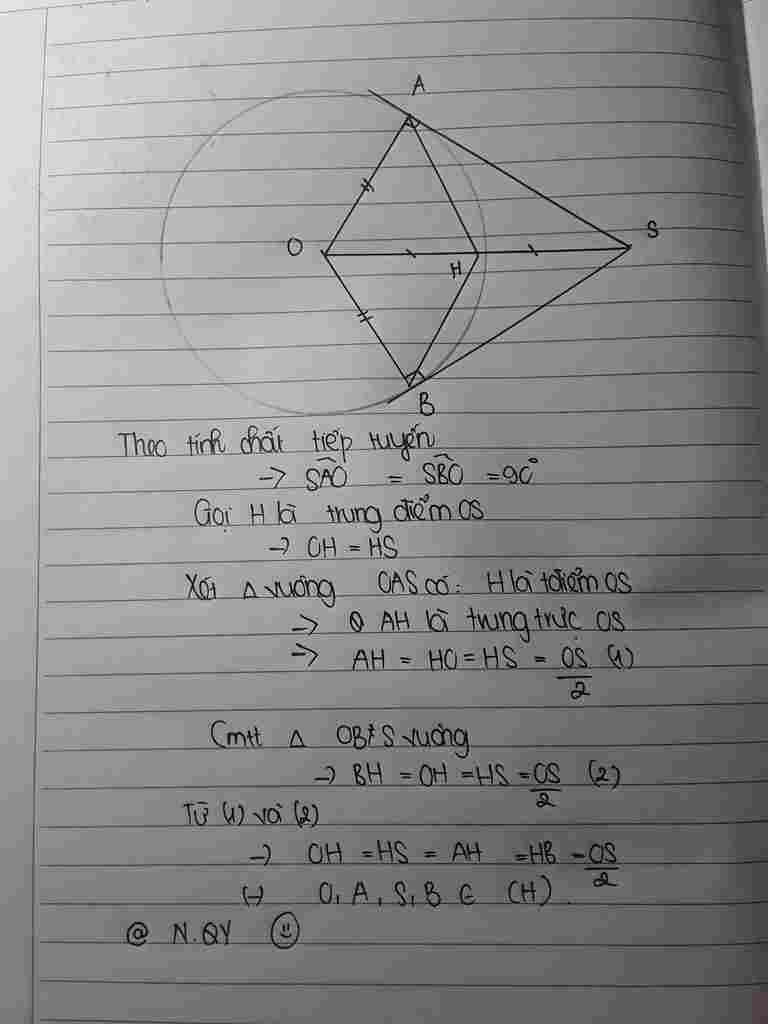 A
O
H
S
B
Theo tính chất tiếp tuyến
→ SÂO = SB̂O = 90°
Gọi H là trung điểm OS
→ OH = HS
Xét △ vuông OAS có: H là tđiểm OS
→ AH là trung trực OS
→ AH = HO = HS = OS/2 (1)
Cmtt △ OBS vuông
→ BH = OH = HS = OS/2 (2)
Từ (1) và (2)
→ OH = HS = AH = HB = OS/2
(-) O, A, S, B ∈ (H).
@ N.QY